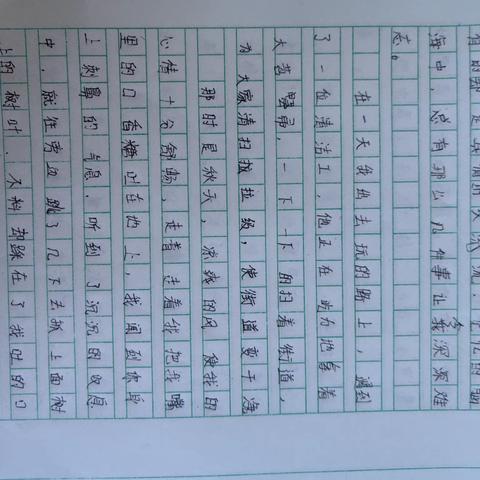 海中，总有那么几件事让我深深难
忘。
在一天我出去玩的路上，遇到
了一位清洁工，他正在助力地拿着
大苕帚，一下一下的扫着街道，
为大家清扫拉圾，使街道变干净
那时是秋天，凉爽的风使我的
心情十分舒畅，走着走着我把我嘴
里的口香糖吐在地上，我闻到你身
上刺鼻的气息，听到了沉沉的收息
中，就住旁边跳了几下去抓上面树
上的树叶，不料却踩在了我吐的口